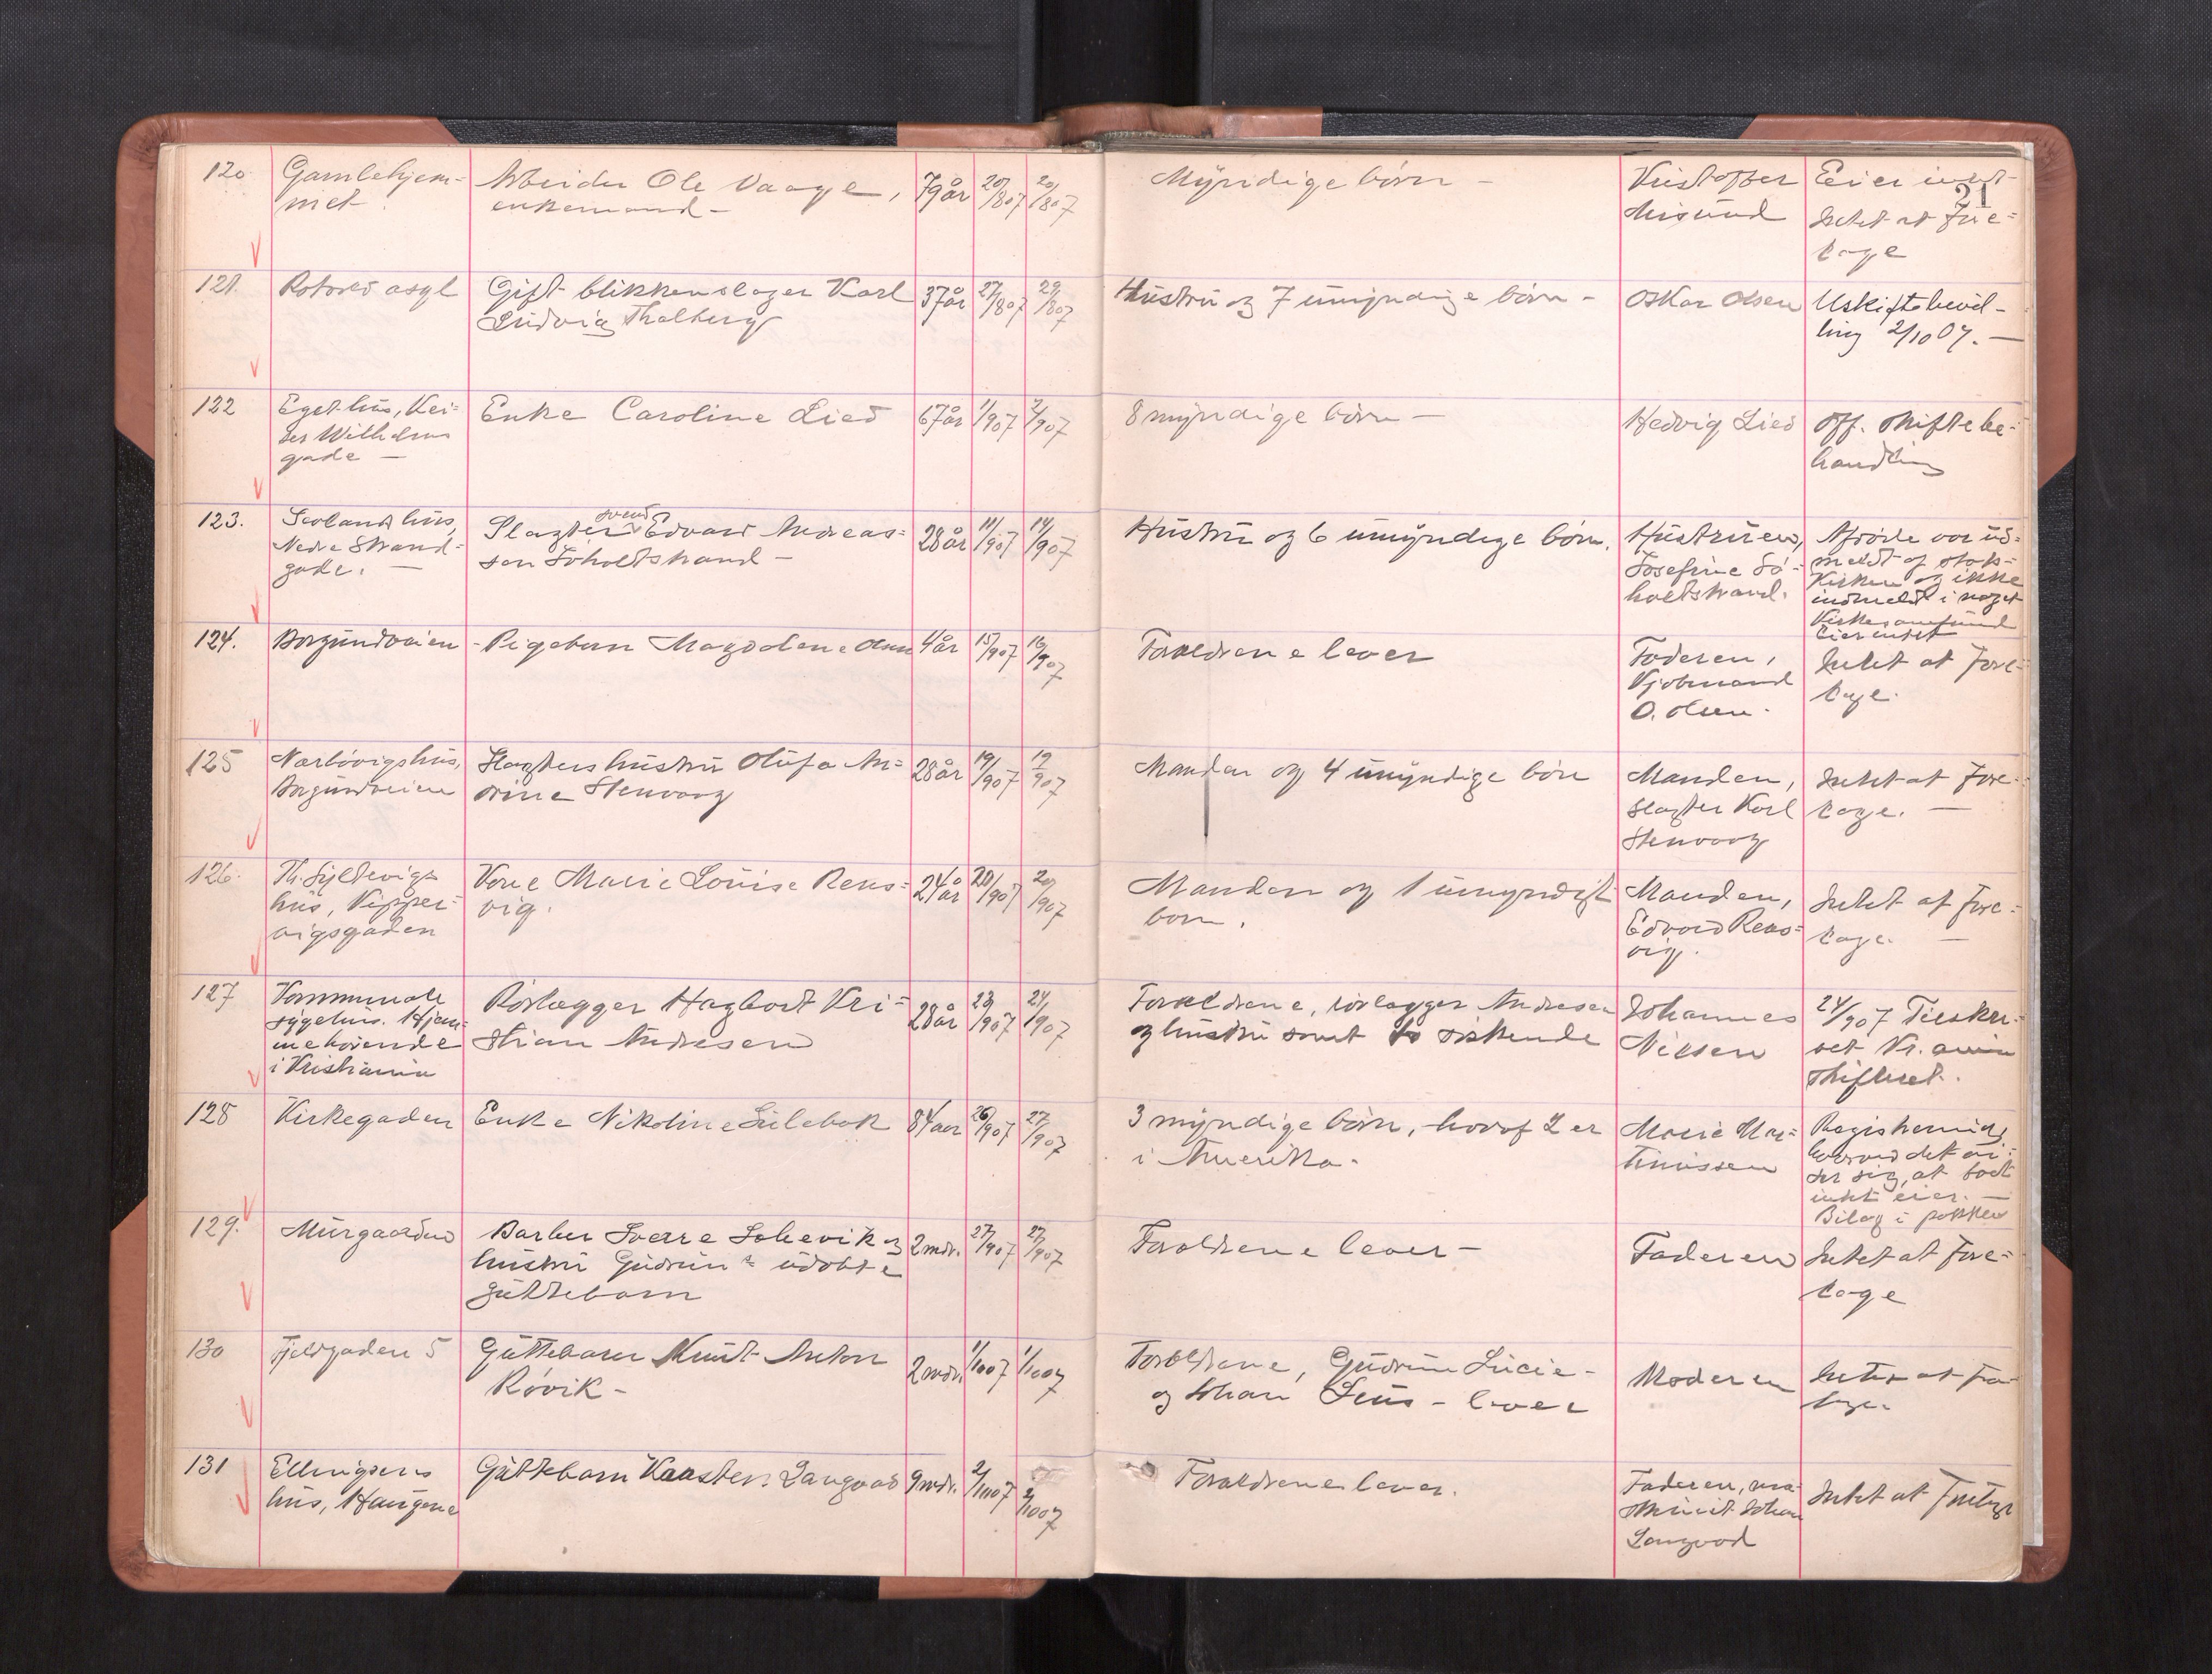 21
120
Gamlehjem=
met.
Arbeider Ole Vaage,
enkemand –
79 år
20/8 07
20/8 07
Myndige børn –
Kristoffer
Misund
Eier intet
Intet at fore=
tage
121.
Rotvold asyl
Gift blikkenslager Karl
Ludvig Thalberg
37 år
27/8 07
29/8 07
Hustru og 7 umyndige børn –
Oskar Olsen
Uskiftebevil-
ling 2/10 07. –
122
Eget hus, Kei=
ser Wilhelms
gade –
Enke Caroline Lied
67 år
1/9 07
2/9 07
8 myndige børn –
Hedvig Lied
Off. skiftebe=
handling
123.
hus,
Nedre Strand=
gade. –
Slagtersvend Edvard Andreas=
sen Soholtstrand –
28 år
11/9 07
14/9 07
Hustru og 6 umyndige børn.
Hustruen,
Josefine So=
holtstrand.
Afdøde var ud=
meldt af stats=
kirken og ikke
indmeldt i noget
kirkesamfund
Eier intet
124.
Borgundveien
Pigebarn Magdalene Olsen
4 år
15/9 07
16/9 07
Forældrene lever
Faderen,
Kjøbmand
O. Olsen.
Intet at fore=
tage.
125
Nørvevigs hus,
Borgundveien
Slagters hustru Olufa An=
drine Stenvaag
28 år
19/9 07
19/9 07
Manden og 4 umyndige børn
Manden,
slagter Karl
Stenvaag
Intet at fore=
tage. –
126.
Th. Syltevigs
hus, Nipper=
vigsgaden
Kone Marie Louise Rens=
vig.
24 år
20/9 07
20/9 07
Manden og 1 umyndigt
barn.
Manden,
Edvard Rens=
vig.
Intet at fore=
tage. –
127
Kommunale
sygehus. Hjem=
mehørende
i Kristiania
Rørlægger Hagbart Kri=
stian Andresen
28 år
23/9 07
24/9 07
Forældrene, rørlægger Andresen
og hustru samt to søskende
Johannes
Nilsen
24/9 07 Tilskre=
vet Kr. ania
skifteret.
128
Kirkegaden
Enke Nikoline Sulebak
84 aar
26/9 07
27/9 07
3 myndige børn, hvoraf 2 er
i Amerika.
Marie Mar=
tinussen
Registrering,
hvorved det vi=
ser sig, at boet
intet eier. –
Bilag i pakken
129.
Murgaarden
Barber Sverre Solevik og
hustru Gudruns udøbte
guttebarn
2 mdr.
27/9 07
27/9 07
Forældrene lever –
Faderen
Intet at fore=
tage
130
Fjeldgaden 5
Guttebarn Knut Anton
Røvik –
2 mdr.
1/10 07
1/10 07
Forældrene, Gudrun Lucie –
og Johan – lever
Moderen
Intet at fore=
tage.
131
Ellingsens
hus, Haugene
Guttebarn Karsten Langvad
9 mdr.
2/10 07
2/10 07
Forældrene lever.
Faderen, ma=
skinist Johan
Langvad
Intet at foretage